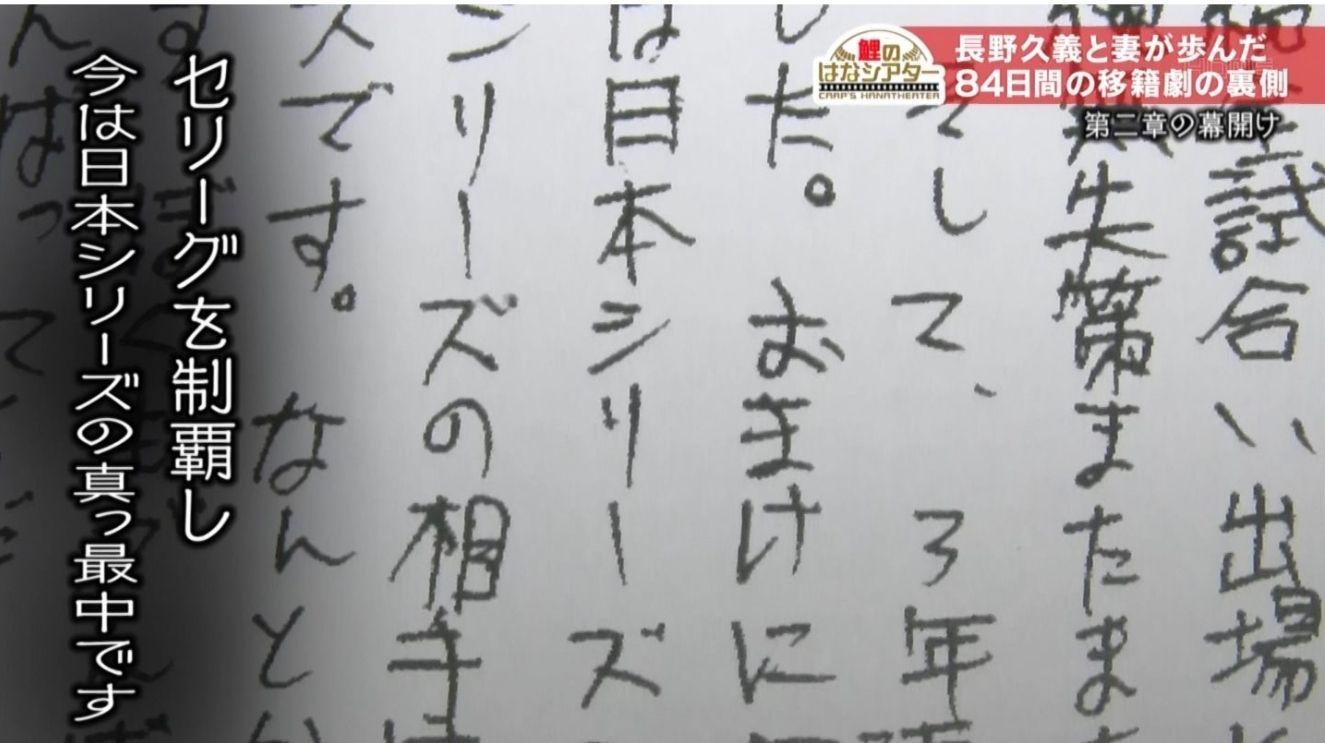 鯉の
はなシアター
CARP'S HANATHEATER
長野久義と妻が歩んだ
84日間の移籍劇の裏側
第二章の幕開け
試合い出場
失策またま
そして、3年
した。おまけに
は日本シリーズ
シリーズの相手は
スです。なんとか
セリーグを制覇し
今は日本シリーズの真っ最中です